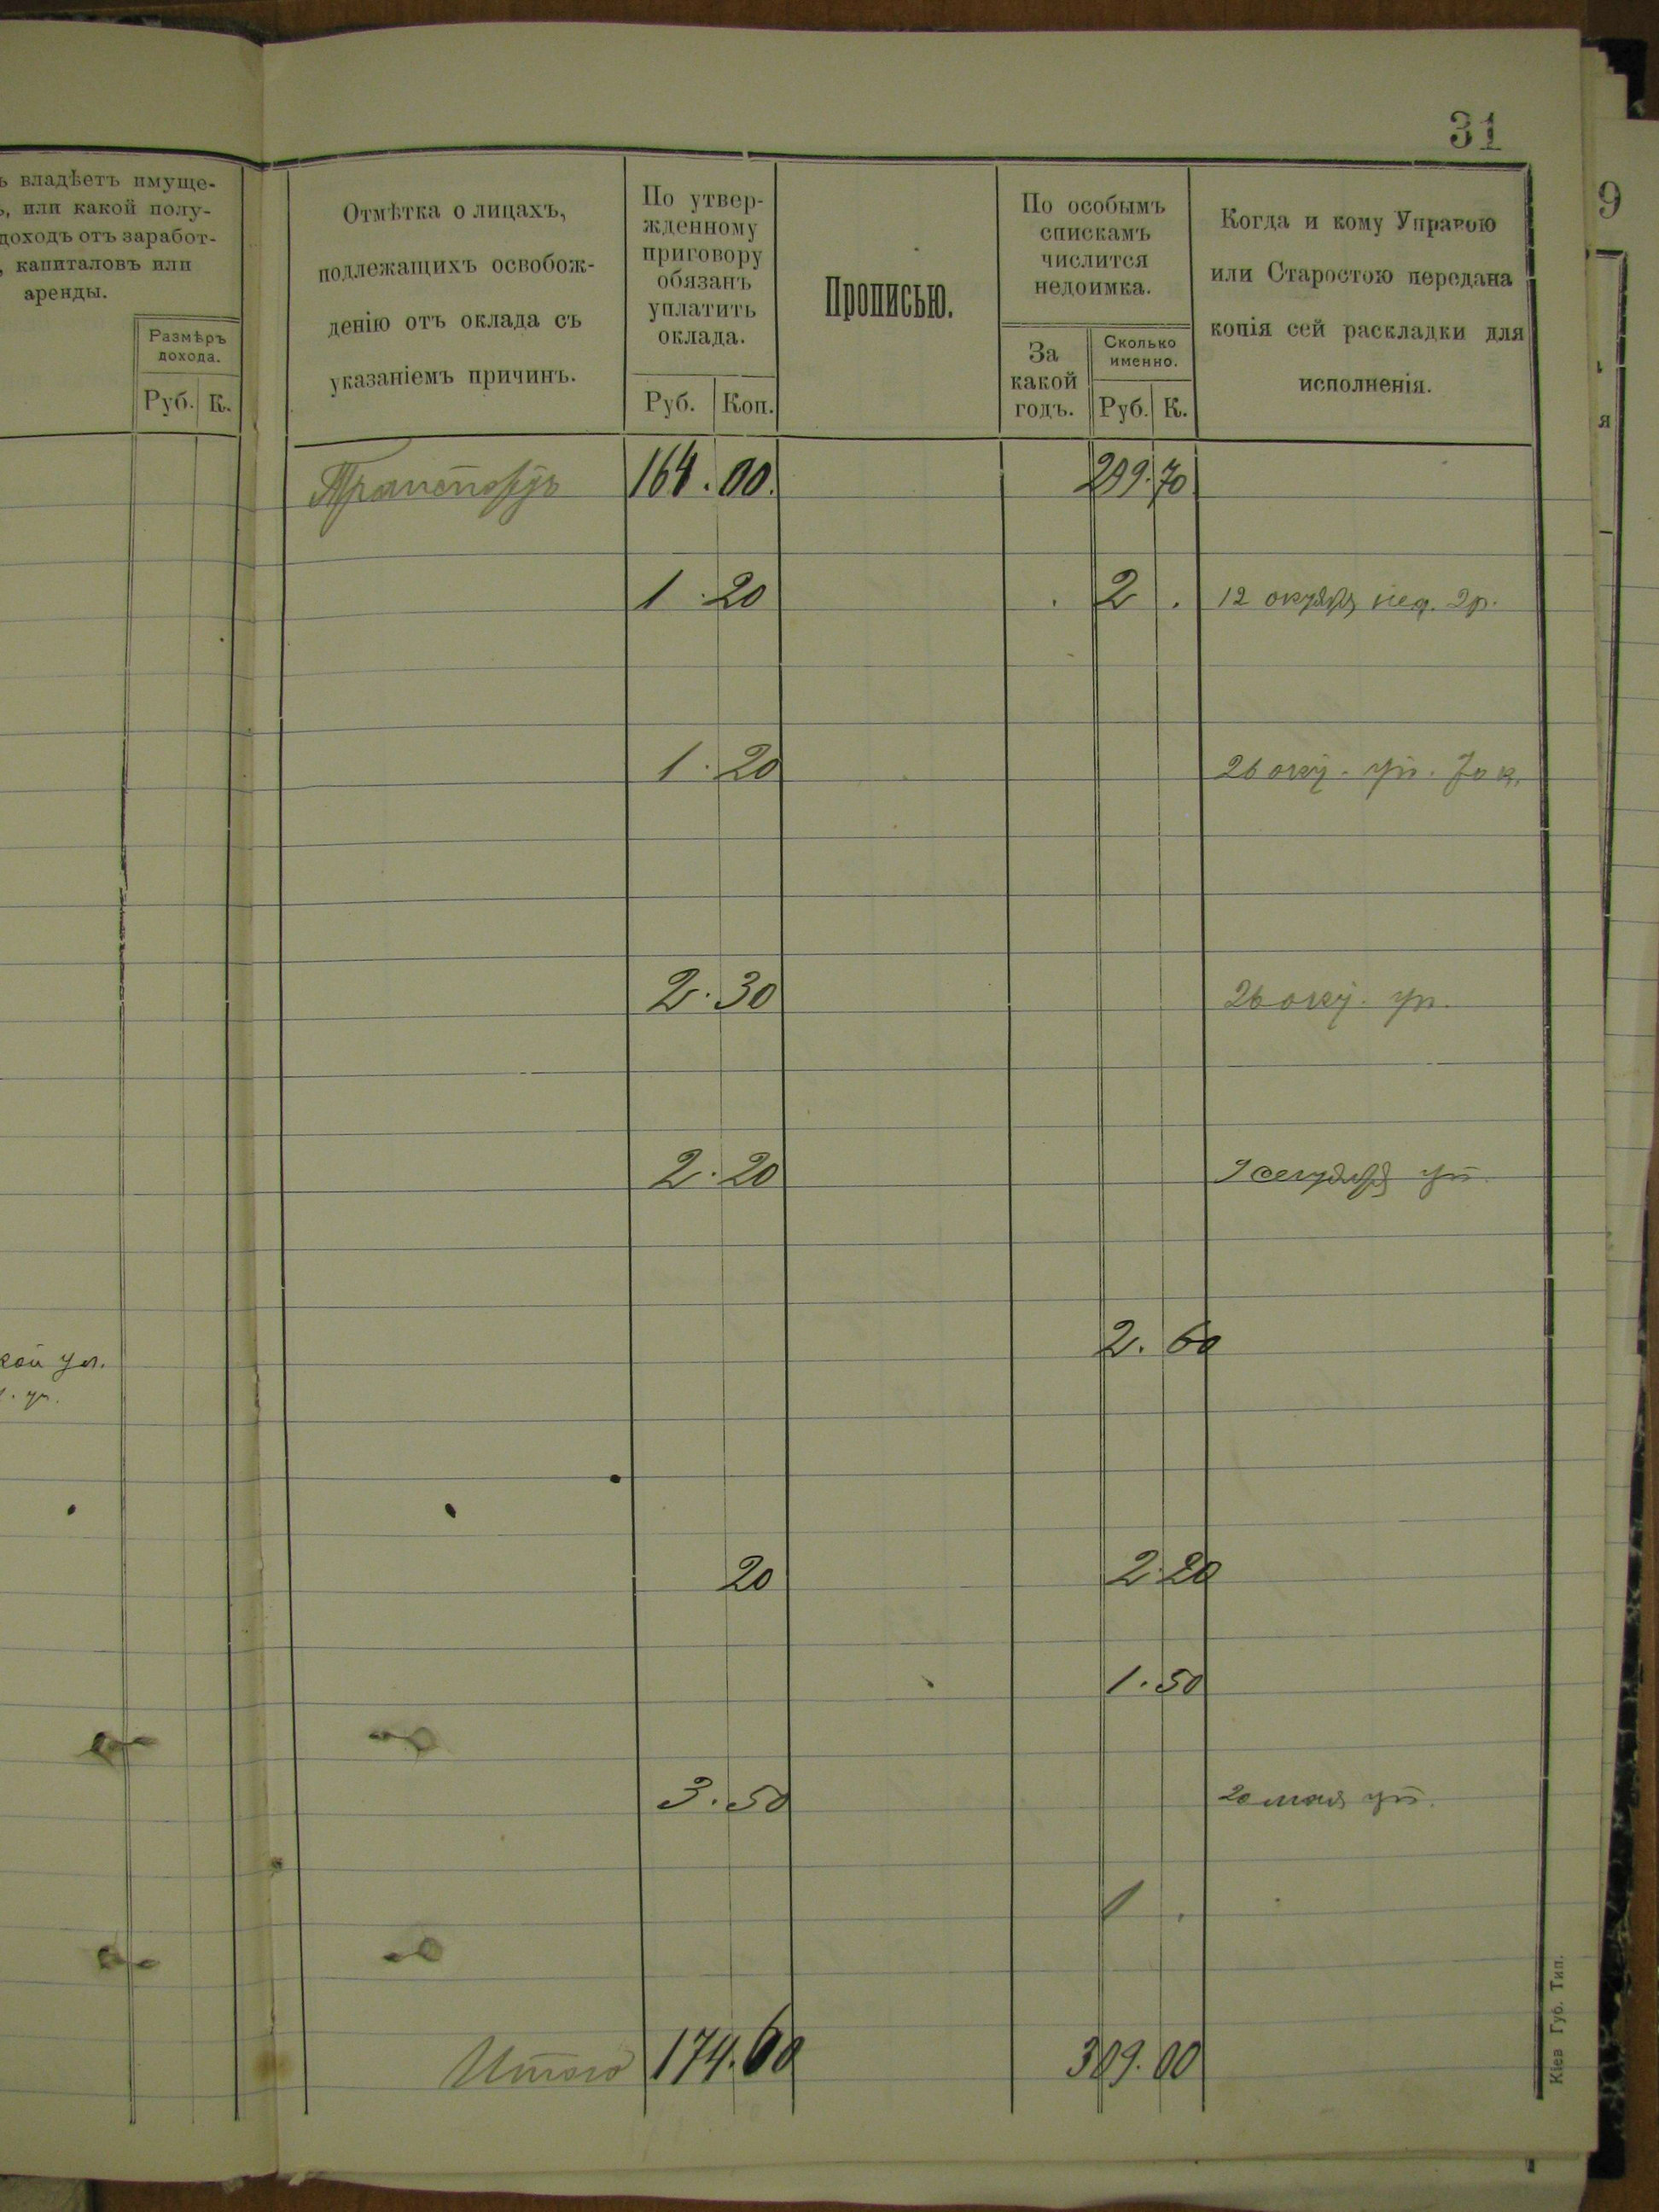 31
ь владѣетъ имуще-
ь, или какой полу-
доходъ отъ заработ-
, капиталовъ или
аренды.
Размѣръ
дохода.
Руб. К.
Отмѣтка о лицахъ,
подлежащихъ освобож-
денію отъ оклада съ
указаніемъ причинъ.
По утвер-
жденному
приговору
обязанъ
уплатить
оклада.
Руб. Коп.
Прописью.
По особымъ
спискамъ
числится
недоимка.
За
какой
годъ.
Сколько
именно.
Руб. К.
Когда и кому Управою
или Старостою передана
копія сей раскладки для
исполненія.
9
я
Транспортъ 164.00. 299.70
1.20 2. 12 октября нед. 2р.
1.20 26 окт. уп. 70 к.
2.30 26 окт. уп.
2.20 уп.
кой ул. 2.60
20 2.20
1.50
3.50 20 мая уп.
1.
Итого 174.60 309.00
Кіев Губ. Тип.